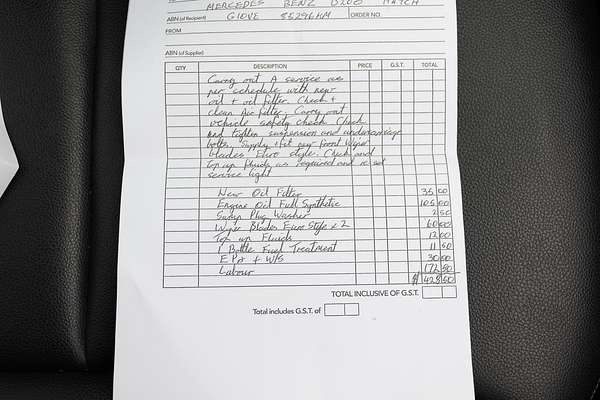 MERCEDES BENZ D200 HATCH
ABN (of Recipient) GIOVE 55296KM ORDER NO.
FROM
ABN (of Supplier)
QTY DESCRIPTION PRICE G.S.T. TOTAL
Carry out A service as
per schedule with new
oil + oil filter. Check +
clean Air filter. Carry out
vehicle safety check Check
and tighten suspension and undercarriage
bolts, Supply + fit new Front Wiper
blades Euro style. Check and
top up fluids as required and re set
service light
New Oil Filter 35 00
Engine Oil Full Synthetic 105 00
Sump Plug Washer 2 50
Wiper Blades Euro Style x 2 60 00
Top up Fluids 12 00
1 Bottle Fuel Treatment 11 50
EPA + W/S 30 00
Labour 172 50
$ 428 50
TOTAL INCLUSIVE OF G.S.T.
Total includes G.S.T. of